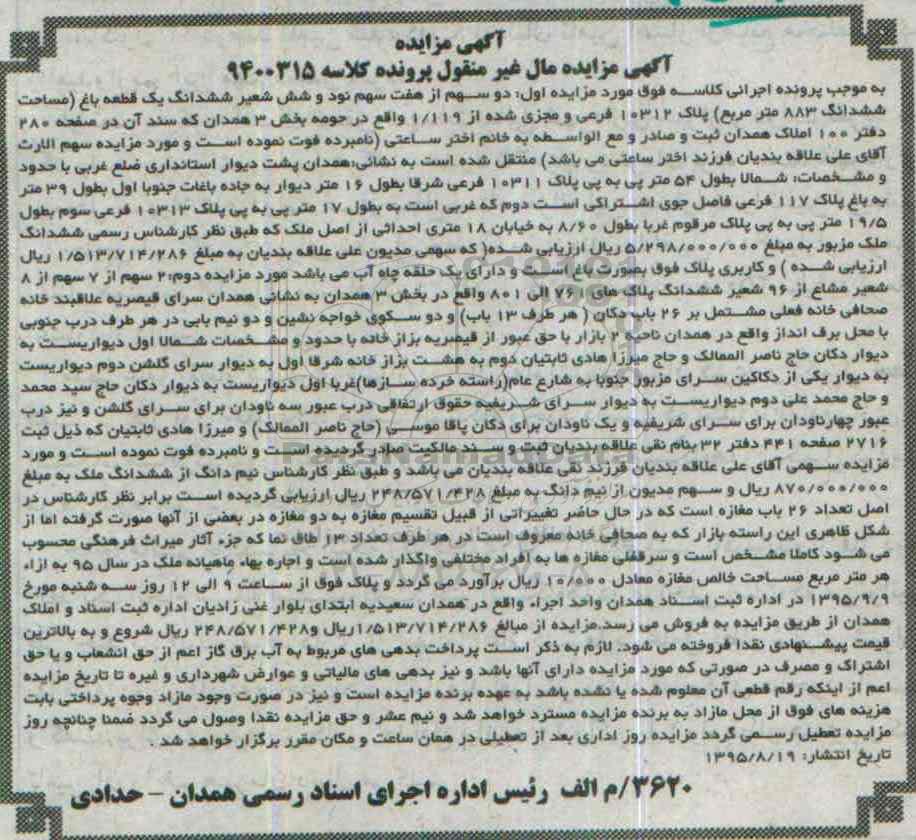 آگهی مزایده
آگهی مزایده مال غیر منقول پرونده کلاسه ۹۴۰۰۳۱۵
به موجب پرونده اجرائی کلاسه فوق مورد مزایده اول: دو سهم از هفت سهم نود و شش شعیر ششدانگ یک قطعه باغ (مساحت
ششدانگ ۸۸۳ متر مربع) پلاک ۱۰۳۱۲ فرعی و مجزی شده از ۱/۱۱۹ واقع در حومه بخش ۳ همدان که سند آن در صفحه ۲۸۰
دفتر ۱۰۰ املاک همدان ثبت و صادر و مع الواسطه به خانم اختر ساعتی (نامبرده فوت نموده است و مورد مزایده سهم الارث
آقای علی علاقه بندیان فرزند اختر ساعتی می باشد) منتقل شده است به نشانی:همدان پشت دیوار استانداری ضلع غربی با حدود
و مشخصات: شمالا بطول ۵۴ متر پی به پی پلاک ۱۰۳۱۱ فرعی شرقا بطول ۱۶ متر دیوار به جاده باغات جنوبا اول بطول ۳۹ متر
به باغ پلاک ۱۱۷ فرعی فاصل جوی اشتراکی است دوم که غربی است به بطول ۱۷ متر پی به پی پلاک ۱۰۳۱۳ فرعی سوم بطول
۱۹/۵ متر پی به پی پلاک مرقوم غربا بطول ۸/۶۰ به خیابان ۱۸ متری احداثی از اصل ملک که طبق نظر کارشناس رسمی ششدانگ
ملک مزبور به مبلغ ۵/۲۹۸/۰۰۰/۰۰۰ ریال ارزیابی شده( که سهمی مدیون علی علاقه بندیان به مبلغ ۱/۵۱۳/۷۱۴/۲۸۶ ریال
ارزیابی شده ) و کاربری پلاک فوق بصورت باغ است و دارای یک حلقه چاه آب می باشد مورد مزایده دوم:۲ سهم از ۷ سهم از ۸
شعیر مشاع از ۹۶ شعیر ششدانگ پلاک های ۷۶۰ الی ۸۰۱ واقع در بخش ۳ همدان به نشانی همدان سرای قیصریه علاقبند خانه
صحافی خانه فعلی مشتمل بر ۲۶ باب دکان ( هر طرف ۱۳ باب) و دو سکوی خواجه نشین و دو نیم بابی در هر طرف درب جنوبی
با محل برف انداز واقع در همدان ناحیه ۲ بازار با حق عبور از قیصریه بزاز خانه با حدود و مشخصات شمالا اول دیواریست به
دیوار دکان حاج ناصر الممالک و حاج میرزا هادی ثابتیان دوم به هشت بزاز خانه شرقا اول به دیوار سرای گلشن دوم دیواریست
به دیوار یکی از دکاکین سرای مزبور جنوبا به شارع عام(راسته خرده سازها)غربا اول دیواریست به دیوار دکان حاج سید محمد
و حاج محمد علی دوم دیواریست به دیوار سرای شریفیه حقوق ارتفاقی درب عبور سه ناودان برای سرای گلشن و نیز درب
عبور چهارناودان برای سرای شریفیه و یک ناودان برای دکان پاقا موسی (حاج ناصر الممالک) و میرزا هادی ثابتیان که ذیل ثبت
۲۷۱۶ صفحه ۴۴۱ دفتر ۳۲ بنام نقی علاقه بندیان ثبت و سند مالکیت صادر گردیده است و نامبرده فوت نموده است و مورد
مزایده سهمی آقای علی علاقه بندیان فرزند نقی علاقه بندیان می باشد و طبق نظر کارشناس نیم دانگ از ششدانگ ملک به مبلغ
۸۷۰/۰۰۰/۰۰۰ ریال و سهم مدیون از نیم دانگ به مبلغ ۲۴۸/۵۷۱/۴۲۸ ریال ارزیابی گردیده است برابر نظر کارشناس در
اصل تعداد ۲۶ باب مغازه است که در حال حاضر تغییراتی از قبیل تقسیم مغازه به دو مغازه در بعضی از آنها صورت گرفته اما از
شکل ظاهری این راسته بازار که به صحافی خانه معروف است در هر طرف تعداد ۱۳ طاق نما که جزء آثار میراث فرهنگی محسوب
می شود کاملا مشخص است و سرقفلی مغازه ها به افراد مختلفی واگذار شده است و اجاره بهاء ماهیانه ملک در سال ۹۵ به ازاء
هر متر مربع مساحت خالص مغازه معادل ۱۰/۰۰۰ ریال برآورد می گردد و پلاک فوق از ساعت ۹ الی ۱۲ روز سه شنبه مورخ
۱۳۹۵/۹/۹ در اداره ثبت اسناد همدان واحد اجراء واقع در همدان سعیدیه ابتدای بلوار غنی زادیان اداره ثبت اسناد و املاک
همدان از طریق مزایده به فروش می رسد.مزایده از مبالغ ۱/۵۱۳/۷۱۴/۲۸۶ریال و۲۴۸/۵۷۱/۴۲۸ ریال شروع و به بالاترین
قیمت پیشنهادی نقدا فروخته می شود. لازم به ذکر است پرداخت بدهی های مربوط به آب برق گاز اعم از حق انشعاب و یا حق
اشتراک و مصرف در صورتی که مورد مزایده دارای آنها باشد و نیز بدهی های مالیاتی و عوارض شهرداری و غیره تا تاریخ مزایده
اعم از اینکه رقم قطعی آن معلوم شده یا نشده باشد به عهده برنده مزایده است و نیز در صورت وجود مازاد وجوه پرداختی بابت
هزینه های فوق از محل مازاد به برنده مزایده مسترد خواهد شد و نیم عشر و حق مزایده نقدا وصول می گردد ضمنا چنانچه روز
مزایده تعطیل رسمی گردد مزایده روز اداری بعد از تعطیلی در همان ساعت و مکان مقرر برگزار خواهد شد .
تاریخ انتشار: ۱۳۹۵/۸/۱۹
۳۶۲۰/م الف رئیس اداره اجرای اسناد رسمی همدان - حدادی